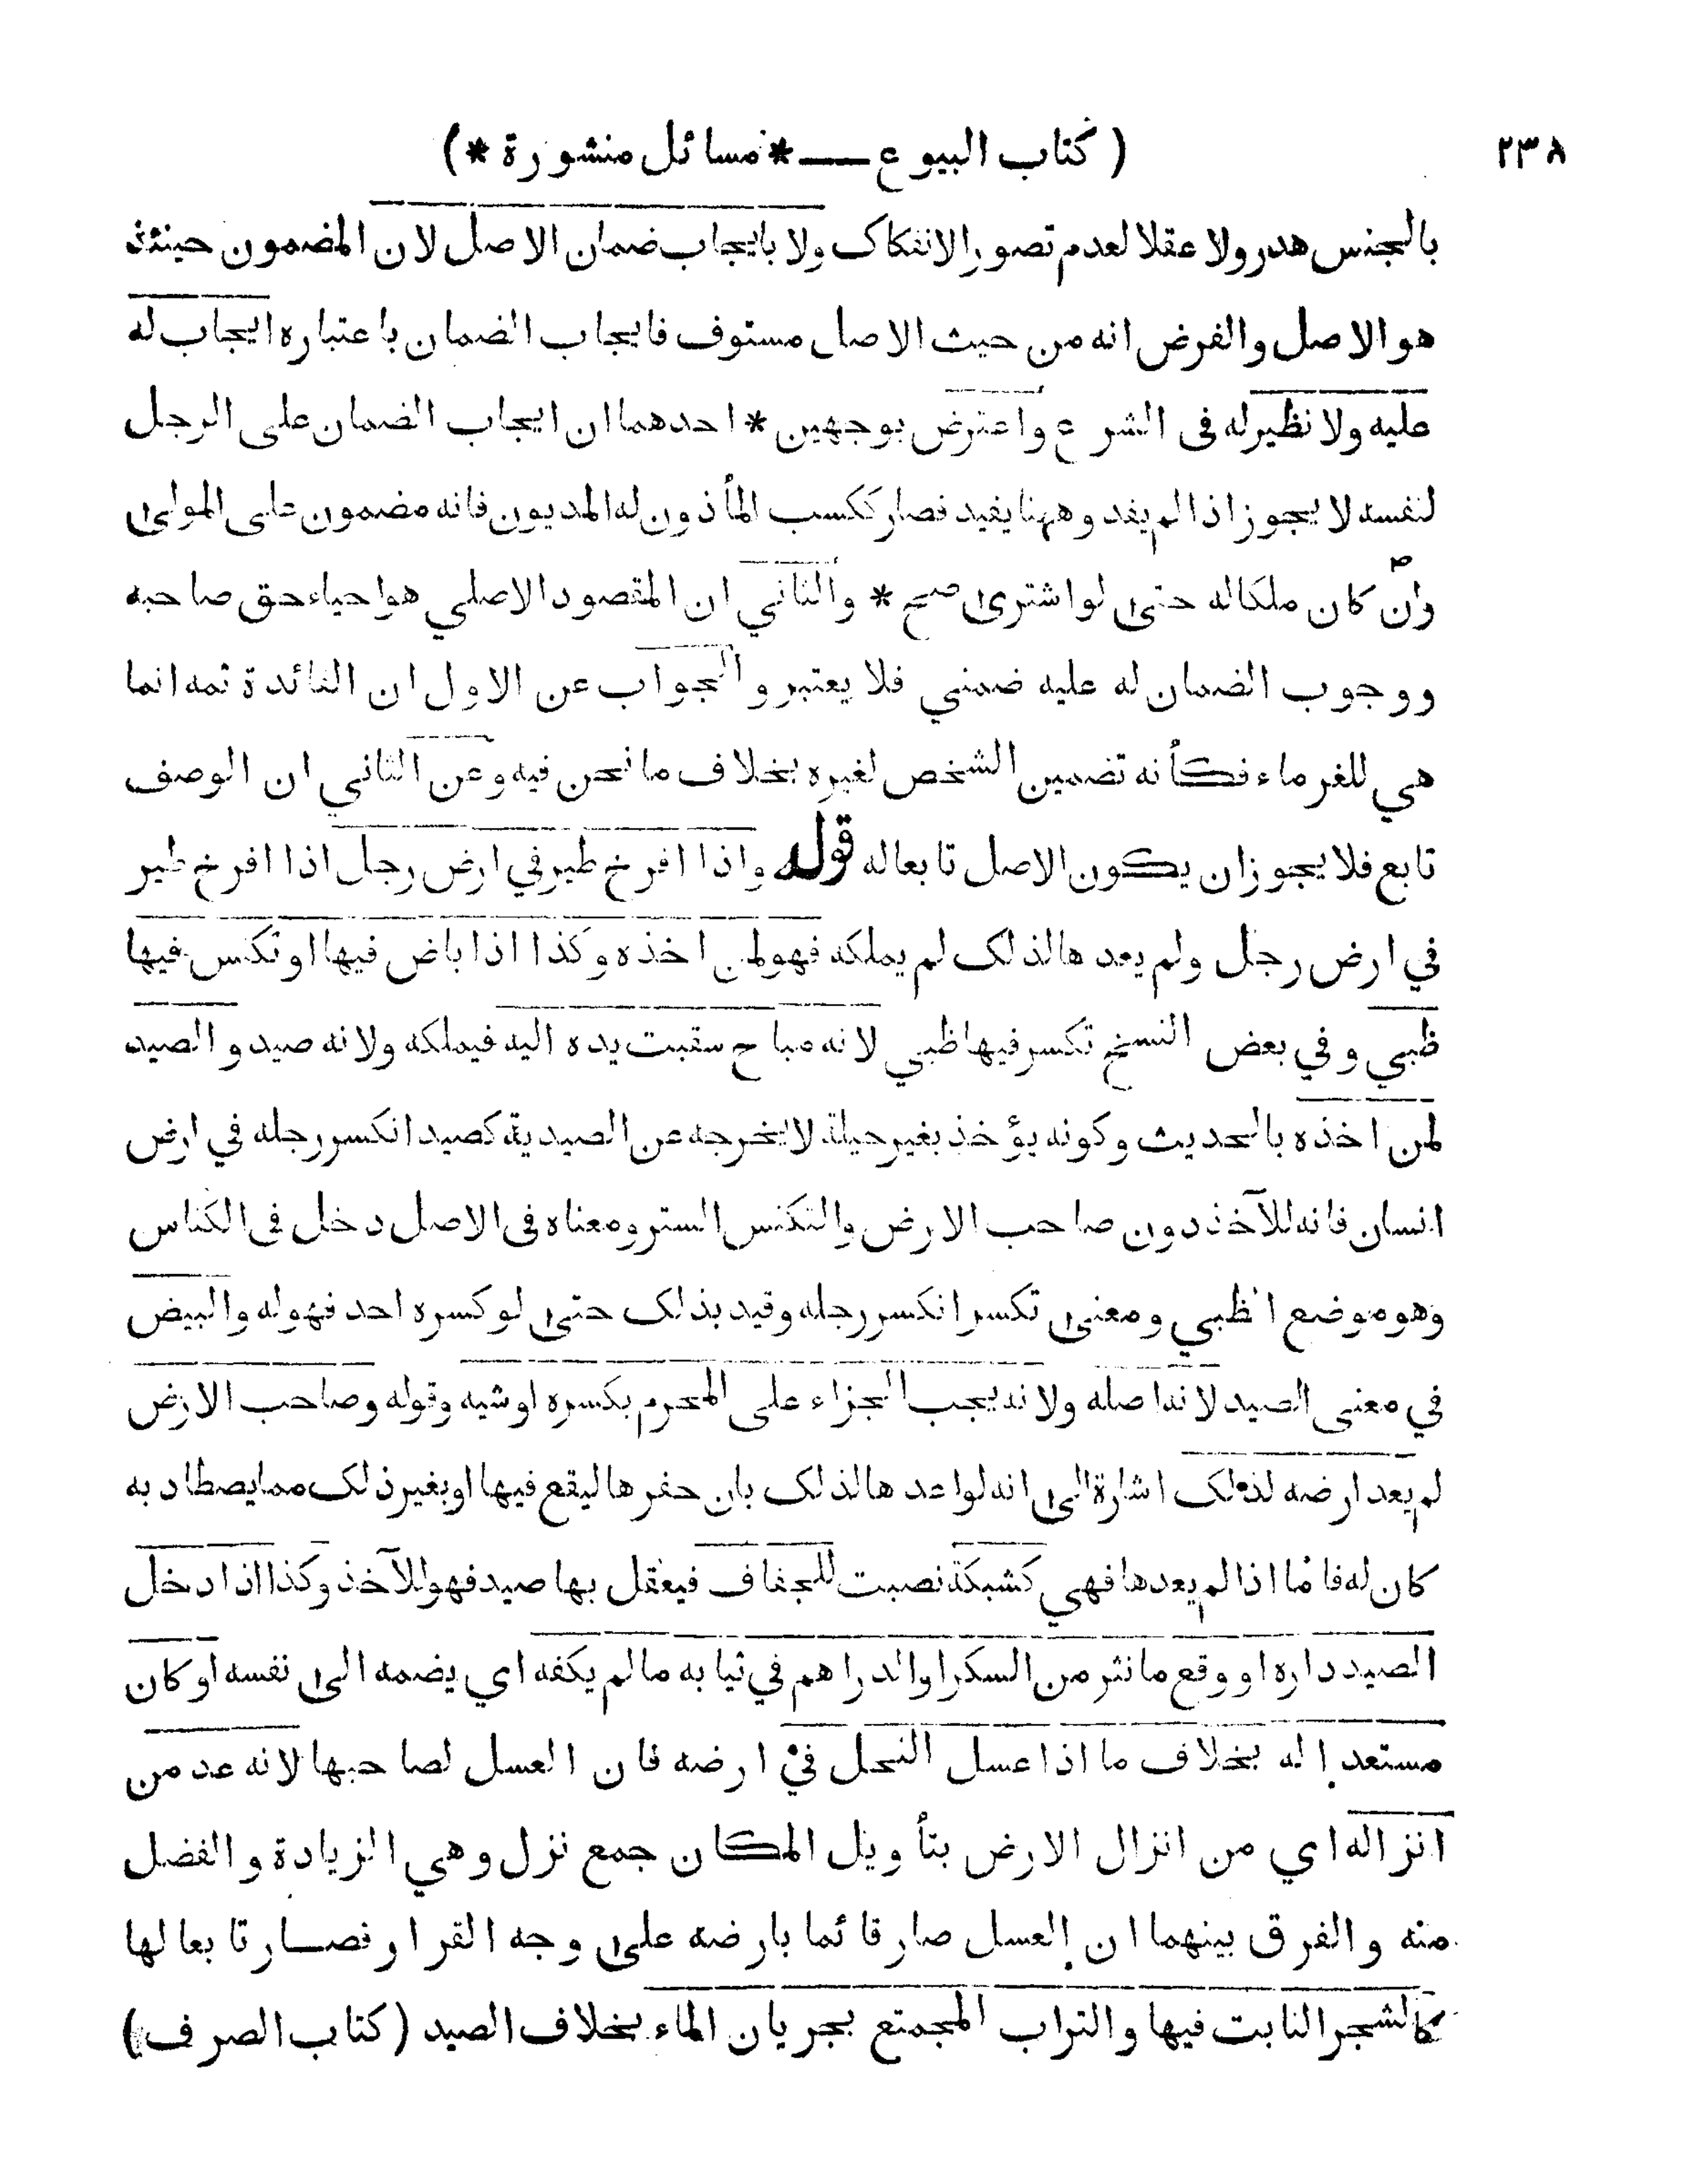 ٢٣٨
( كتاب البيوع — * مسائل منثورة * )
بالجنس هدر ولا عقلا لعدم تصور الانفكاك ولا بايجاب ضمان الاصل لان المضمون حينئذ
هو الاصل والفرض انه من حيث الاصل مستوف فايجاب الضمان باعتباره ايجاب له
عليه ولا نظير له فى الشرع واعترض بوجهين * احدهما ان ايجاب الضمان على الرجل
لنفسه لا يجوز اذا لم يفد وههنا يفيد فصار ككسب المأذون له المديون فانه مضمون على المولى
وان كان ملكا له حتى لو اشترى صح * والثاني ان المقصود الاصلي هو احياء حق صاحبه
ووجوب الضمان له عليه ضمني فلا يعتبر والجواب عن الاول ان الفائدة ثمه انما
هي للغرماء فكأنه تضمين الشخص لغيره بخلاف ما نحن فيه وعن الثاني ان الوصف
تابع فلا يجوز ان يكون الاصل تابعا له قوله واذا افرخ طير في ارض رجل اذا افرخ طير
في ارض رجل ولم يعدها لذلك لم يملكه فهو لمن اخذه وكذا اذا باض فيها او تكنس فيها
ظبي وفي بعض النسخ تكسر فيها ظبي لانه مباح سقبت يده اليه فيملكه ولانه صيد والصيد
لمن اخذه بالحديث وكونه يؤخذ بغير حيلة لا يخرجه عن الصيدية كصيد انكسر رجله في ارض
انسان فانه للآخذ دون صاحب الارض والتكنس الستر ومعناه فى الاصل دخل فى الكناس
وهو موضع الظبي ومعنى تكسر انكسر رجله وقيد بذلك حتى لو كسره احد فهو له والبيض
في معنى الصيد لانه اصله ولانه يجب الجزاء على المحرم بكسره او شيه وقوله وصاحب الارض
لم يعد ارضه لذلك اشارة الى انه لو اعدها لذلك بان حفرها ليقع فيها او بغير ذلك مما يصطاد به
كان له فاما اذا لم يعدها فهي كشبكة نصبت للجفاف فيعقل بها صيد فهو للآخذ وكذا اذا دخل
الصيد داره او وقع ما نثر من السكر او الدراهم في ثيابه ما لم يكفه اي يضمه الى نفسه او كان
مستعدا له بخلاف ما اذا عسل النحل في ارضه فان العسل لصاحبها لانه عد من
انزاله اي من انزال الارض بتأويل المكان جمع نزل وهي الزيادة والفضل
منه والفرق بينهما ان العسل صار قائما بارضه على وجه القرار فصار تابعا لها
كالشجر النابت فيها والتراب المجمتع بجريان الماء بخلاف الصيد ( كتاب الصرف )